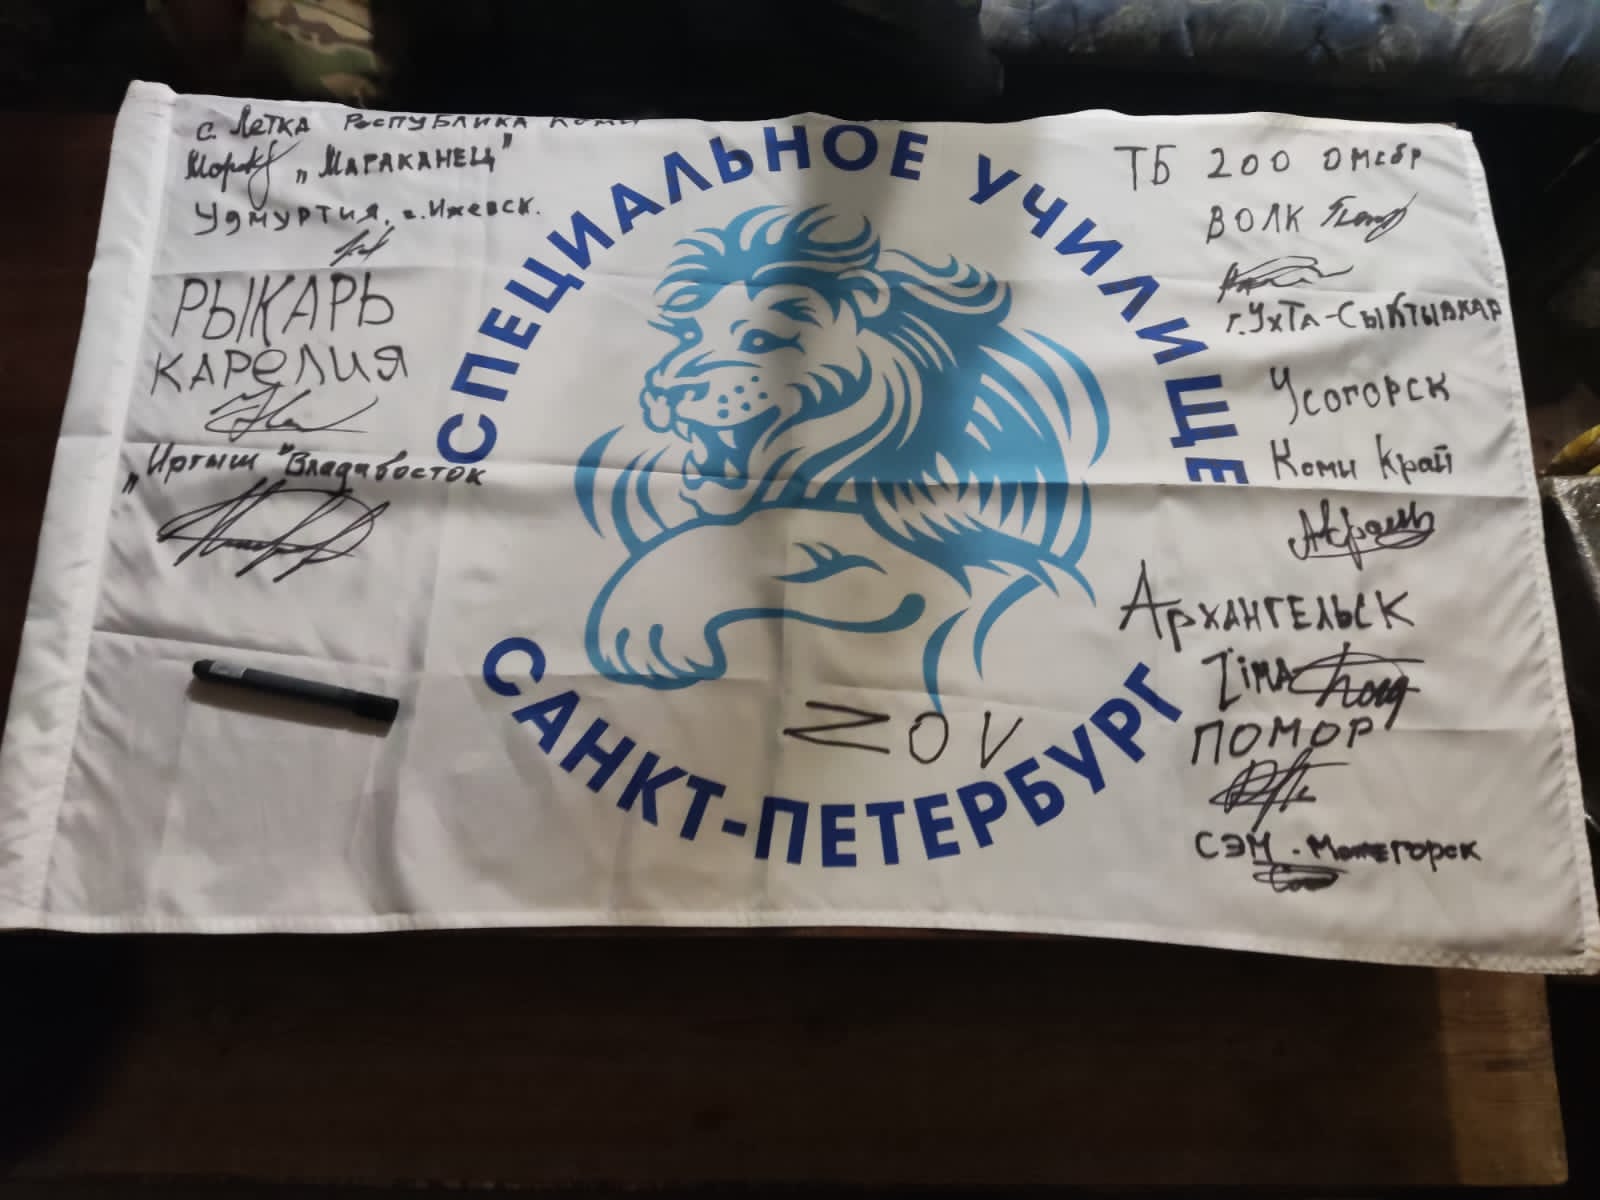 с. Летка Республика Коми
"Мараканец"
Удмуртия, г. Ижевск.
РЫКАРЬ
КАРЕЛИЯ
"Иртыш" Владивосток
СПЕЦИАЛЬНОЕ УЧИЛИЩЕ
САНКТ-ПЕТЕРБУРГ
ZOV
ТБ 200 ОМСБР
ВОЛК
г. Ухта-Сыктывкар
Усогорск
Коми Край
Архангельск
ZiMA
ПОМОР
СЭМ.